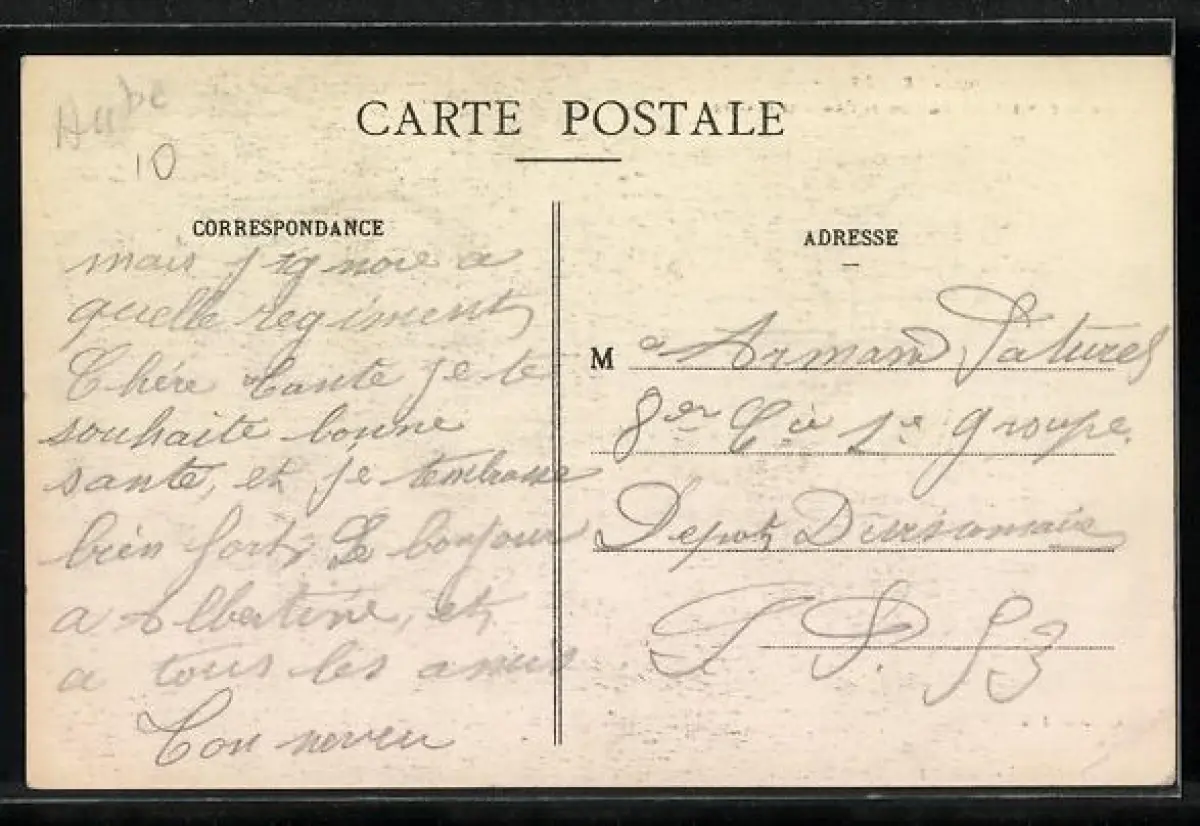 Aube
10
CARTE POSTALE
CORRESPONDANCE
mais j ignore a
quelle regiment
Chére tante je te
souhaite bonne
santé, et je t'embrasse
bien fort, Le bonjour
a Albertine, et
a tous les amis
Ton neveu
ADRESSE
M Armand
8er Cie 1e groupe
Depot Divisionnaire
S. P. 53